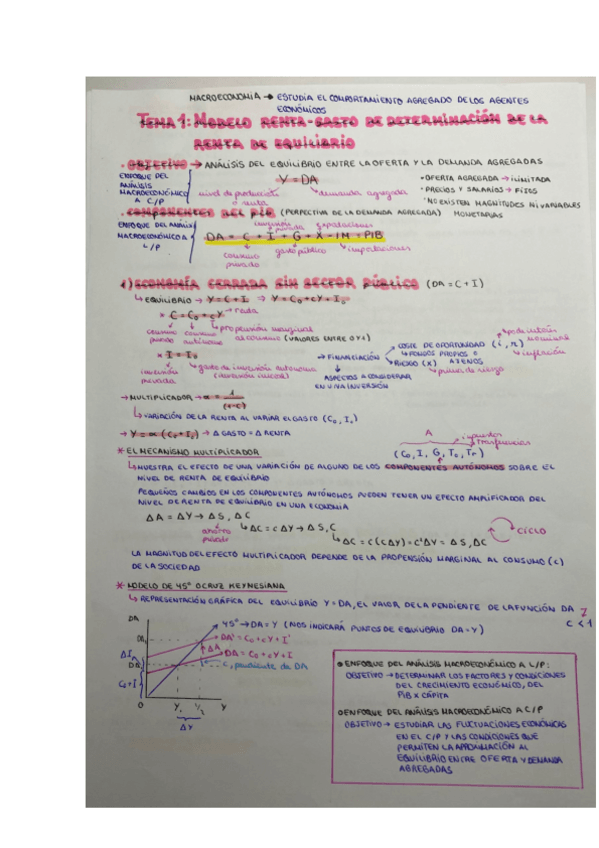 MACROECONOMIA → ESTUDIA EL COMPORTAMIENTO AGREGADO DE LOS AGENTES
ECONÓMICOS
TEMA 1: MODELO RENTA-GASTO DE DETERMINACIÓN DE LA
RENTA DE EQUILIBRIO
· OBJETIVO → ANÁLISIS DEL EQUILIBRIO ENTRE LA OFERTA Y LA DEMANDA AGREGADAS
ENFOQUE DEL
ANÁLISIS
MACROECONÓMICO
A C/P
Y = DA
nivel de producción
o renta
demanda agregada
· OFERTA AGREGADA → ILIMITADA
· PRECIOS Y SALARIOS → FIJOS
· NO EXISTEN MAGNITUDES NI VARIABLES
MONETARIAS
· COMPONENTES DEL PIB (PERSPECTIVA DE LA DEMANDA AGREGADA)
ENFOQUE DEL ANÁLISIS
MACROECONÓMICO A
L/P
inversión
privada
exportaciones
DA = C + I + G + X - IM = PIB
consumo
privado
gasto público
importaciones
1) ECONOMÍA CERRADA SIN SECTOR PÚBLICO (DA = C + I)
↳ EQUILIBRIO → Y = C + I ⇒ Y = C₀ + cY + I₀
* C = C₀ + cY → renta
consumo
privado
consumo
autónomo
propensión marginal
al consumo (VALORES ENTRE 0 Y 1)
* I = I₀
inversión
privada
gasto de inversión autónoma
(inversión inicial)
→ FINANCIACIÓN
COSTE DE OPORTUNIDAD (i, π)
↳ FONDOS PROPIOS O
AJENOS
RIESGO (X)
nominal
inflación
prima de riesgo
ASPECTOS A CONSIDERAR
EN UNA INVERSIÓN
→ MULTIPLICADOR → α = 1/(1-c)
↳ VARIACIÓN DE LA RENTA AL VARIAR EL GASTO (C₀, I₀)
→ Y = α (C₀ + I₀) → Δ GASTO = Δ RENTA
* EL MECANISMO MULTIPLICADOR
A
impuestos
transferencias
(C₀, I, G, T₀, TF)
↳ MUESTRA EL EFECTO DE UNA VARIACIÓN DE ALGUNO DE LOS COMPONENTES AUTÓNOMOS SOBRE EL
NIVEL DE RENTA DE EQUILIBRIO
PEQUEÑOS CAMBIOS EN LOS COMPONENTES AUTÓNOMOS PUEDEN TENER UN EFECTO AMPLIFICADOR DEL
NIVEL DE RENTA DE EQUILIBRIO EN UNA ECONOMÍA
ΔA = ΔY → ΔS, ΔC
ahorro
privado
↳ ΔC = c ΔY → ΔS, C
↳ ΔC = c(cΔY) = c²ΔY = ΔS, ΔC
CICLO
LA MAGNITUD DEL EFECTO MULTIPLICADOR DEPENDE DE LA PROPENSIÓN MARGINAL AL CONSUMO (c)
DE LA SOCIEDAD
* MODELO DE 45° O CRUZ KEYNESIANA
↳ REPRESENTACIÓN GRÁFICA DEL EQUILIBRIO Y = DA, EL VALOR DE LA PENDIENTE DE LA FUNCIÓN DA
C < 1
DA
45° → DA = Y (NOS INDICARÁ PUNTOS DE EQUILIBRIO DA = Y)
DA' = C₀ + cY + I'
ΔA
DA = C₀ + cY + I
c, pendiente de DA
DA₂
ΔI
DA₁
C₀ + I
0
Y₁
Y₂
Y
ΔY
● ENFOQUE DEL ANÁLISIS MACROECONÓMICO A L/P:
OBJETIVO → DETERMINAR LOS FACTORES Y CONDICIONES
DEL CRECIMIENTO ECONÓMICO, DEL
PIB X CÁPITA
○ ENFOQUE DEL ANÁLISIS MACROECONÓMICO A C/P
OBJETIVO → ESTUDIAR LAS FLUCTUACIONES ECONÓMICAS
EN EL C/P Y LAS CONDICIONES QUE
PERMITEN LA APROXIMACIÓN AL
EQUILIBRIO ENTRE OFERTA Y DEMANDA
AGREGADAS